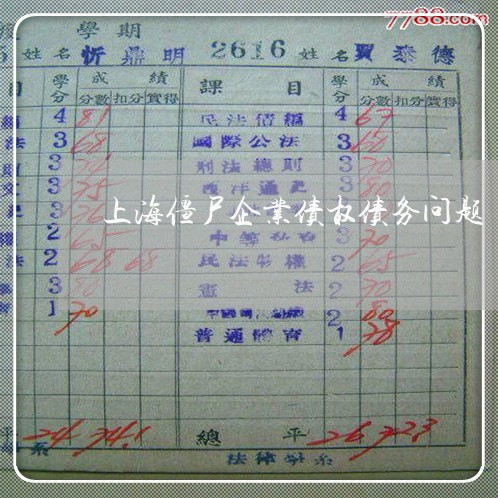 7788.com
學期
姓名 忻鼎明 2616 姓名 賈泰德
目 學分 成績 課目 學分 成績
分數 扣分 實得 分數 扣分 實得
4 81 民法債編 4 67
法 3 68 國際公法 3 60
3 刑法總則 3 70
3 75 西洋通史 3 80
上海僵尸企業债权债务问题
2 65 3 70
法 2 68 68 民法物權 2 65
3 80 憲法 2 70
1 70 2 80
普通體育 1 78
平 24 74.1 總平 26 72.3
系 法律學系